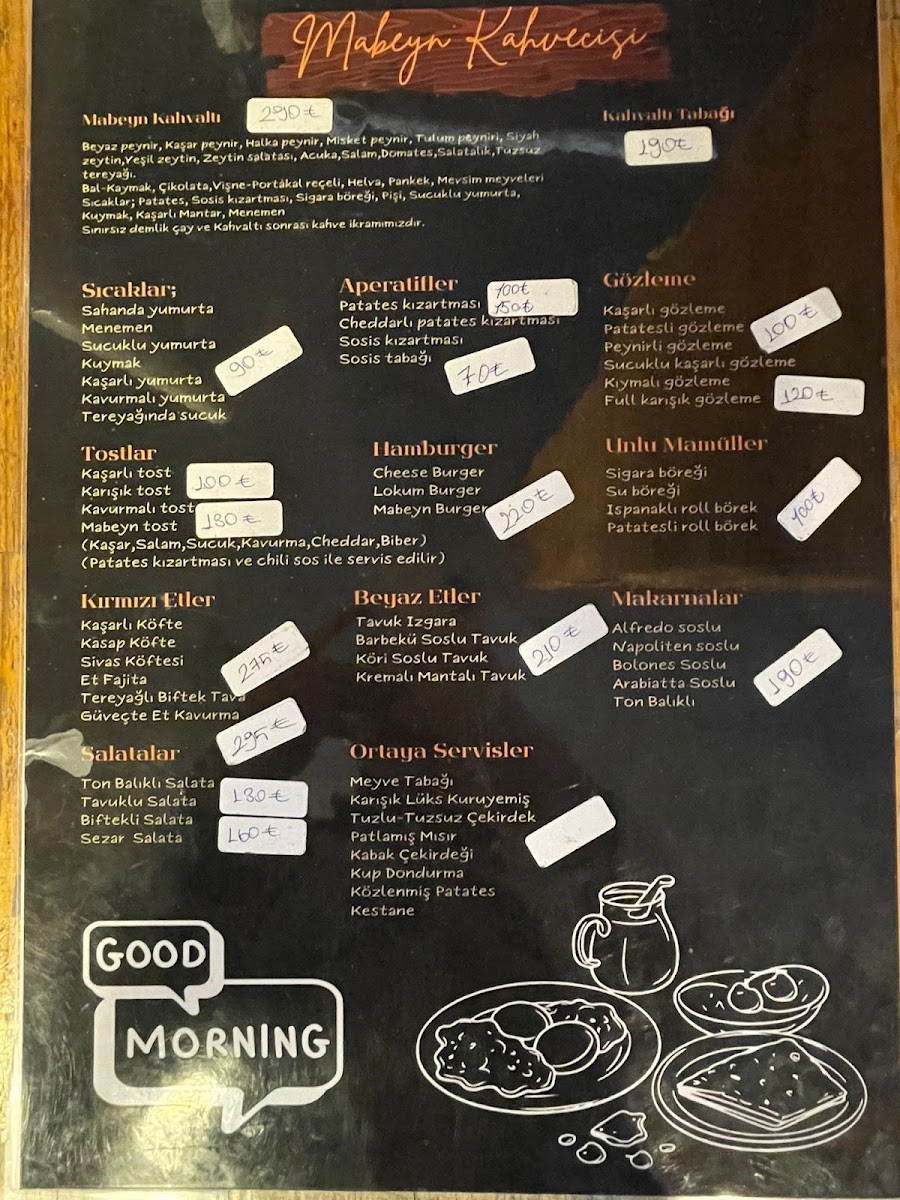 Mabeyn Kahvecisi
Mabeyn Kahvaltı 290₺
Beyaz peynir, Kaşar peynir, Halka peynir, Misket peynir, Tulum peyniri, Siyah
zeytin,Yeşil zeytin, Zeytin salatası, Acuka,Salam,Domates,Salatalık,Tuzsuz
tereyağı.
Bal-Kaymak, Çikolata,Vişne-Portakal reçeli, Helva, Pankek, Mevsim meyveleri
Sıcaklar; Patates, Sosis kızartması, Sigara böreği, Pişi, Sucuklu yumurta,
Kuymak, Kaşarlı Mantar, Menemen
Sınırsız demlik çay ve Kahvaltı sonrası kahve ikramımızdır.
Kahvaltı Tabağı
190₺
Sıcaklar;
Sahanda yumurta
Menemen
Sucuklu yumurta
Kuymak
90₺
Kaşarlı yumurta
Kavurmalı yumurta
Tereyağında sucuk
Aperatifler
Patates kızartması 100₺
150₺
Cheddarlı patates kızartması
Sosis kızartması
Sosis tabağı
70₺
Gözleme
Kaşarlı gözleme
Patatesli gözleme 100₺
Peynirli gözleme
Sucuklu kaşarlı gözleme
Kıymalı gözleme
Full karışık gözleme 120₺
Tostlar
Kaşarlı tost 100₺
Karışık tost
Kavurmalı tost
Mabeyn tost 180₺
(Kaşar,Salam,Sucuk,Kavurma,Cheddar,Biber)
(Patates kızartması ve chili sos ile servis edilir)
Hamburger
Cheese Burger
Lokum Burger
Mabeyn Burger 220₺
Unlu Mamüller
Sigara böreği
Su böreği
Ispanaklı roll börek 100₺
Patatesli roll börek
Kırmızı Etler
Kaşarlı Köfte
Kasap Köfte
Sivas Köftesi 275₺
Et Fajita
Tereyağlı Biftek Tava
Güveçte Et Kavurma
295₺
Beyaz Etler
Tavuk Izgara
Barbekü Soslu Tavuk 210₺
Köri Soslu Tavuk
Kremalı Mantalı Tavuk
Makarnalar
Alfredo soslu
Napoliten soslu
Bolones Soslu 190₺
Arabiatta Soslu
Ton Balıklı
Salatalar
Ton Balıklı Salata 180₺
Tavuklu Salata
Biftekli Salata
Sezar Salata 160₺
Ortaya Servisler
Meyve Tabağı
Karışık Lüks Kuruyemiş
Tuzlu-Tuzsuz Çekirdek
Patlamış Mısır
Kabak Çekirdeği
Kup Dondurma
Közlenmiş Patates
Kestane
GOOD
MORNING